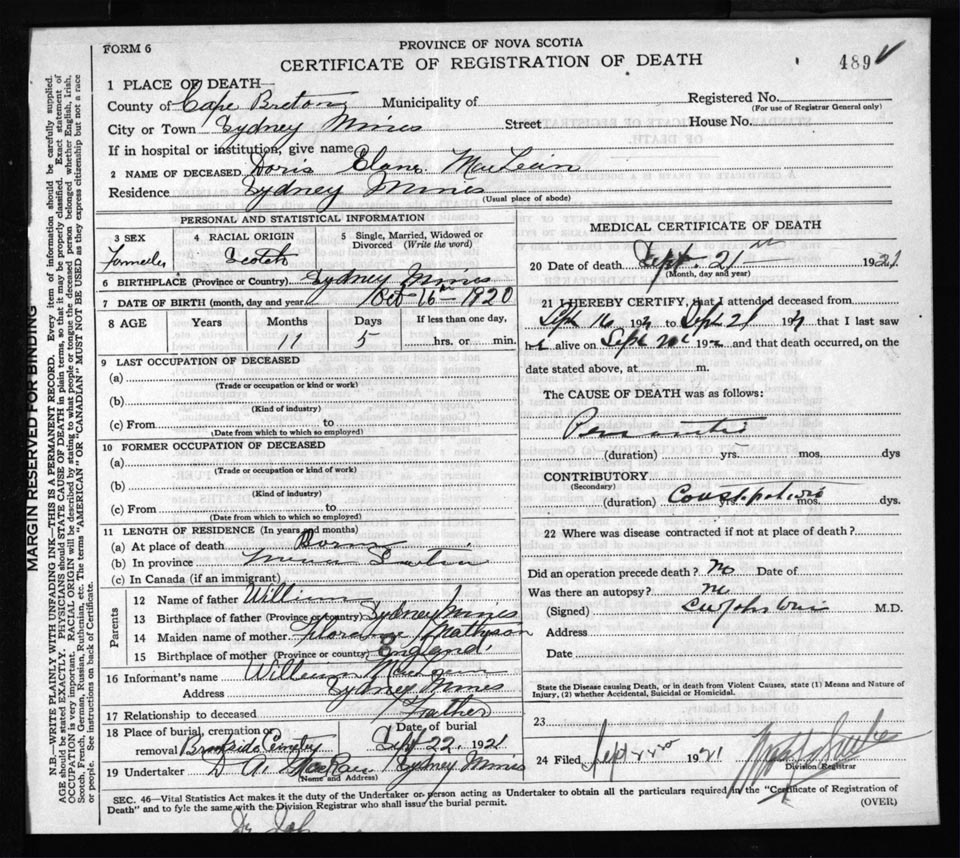 FORM 6
PROVINCE OF NOVA SCOTIA
CERTIFICATE OF REGISTRATION OF DEATH
489
1 PLACE OF DEATH
County of Cape Breton Municipality of
Registered No.
(For use of Registrar General only)
City or Town Sydney Mines Street House No.
If in hospital or institution, give name
2 NAME OF DECEASED Doris MacLean
Residence Sydney Mines
(Usual place of abode)
PERSONAL AND STATISTICAL INFORMATION
3 SEX
4 RACIAL ORIGIN
Scotch
5 Single, Married, Widowed or Divorced (Write the word)
6 BIRTHPLACE (Province or Country) Sydney Mines
7 DATE OF BIRTH (month, day and year) Oct 16th 1920
8 AGE Years Months Days If less than one day,
11 5 hrs. or min.
9 LAST OCCUPATION OF DECEASED
(a)
(Trade or occupation or kind or work)
(b)
(Kind of industry)
(c) From to
(Date from which to which so employed)
10 FORMER OCCUPATION OF DECEASED
(a)
(Trade or occupation or kind of work)
(b)
(Kind of industry)
(c) From to
(Date from which to which so employed)
11 LENGTH OF RESIDENCE (In years and months)
(a) At place of death Born
(b) In province
(c) In Canada (if an immigrant)
Parents
12 Name of father William
13 Birthplace of father (Province or country) Sydney Mines
14 Maiden name of mother Florence Matheson
15 Birthplace of mother (Province or country) England
16 Informant's name William MacLean
Address Sydney Mines
17 Relationship to deceased Father
18 Place of burial, cremation or removal Brookside Cemetery
Date of burial
Sept 22 1921
19 Undertaker D. A. Sydney Mines
(Name and Address)
MEDICAL CERTIFICATE OF DEATH
20 Date of death Sept. 21 1921
(Month, day and year)
21 I HEREBY CERTIFY, that I attended deceased from
Sept 16 192 to Sept 21 192 that I last saw
alive on Sept 192 and that death occurred, on the
date stated above, at m.
The CAUSE OF DEATH was as follows:
(duration) yrs. mos. dys
CONTRIBUTORY
(Secondary)
Constipation
(duration) yrs. mos. dys.
22 Where was disease contracted if not at place of death?
Did an operation precede death? No Date of
Was there an autopsy? No
(Signed) M.D.
Address
Date
State the Disease causing Death, or in death from Violent Causes, state (1) Means and Nature of
Injury, (2) whether Accidental, Suicidal or Homicidal.
23
24 Filed, Sept 22nd 1921
Division Registrar
SEC. 46—Vital Statistics Act makes it the duty of the Undertaker or person acting as Undertaker to obtain all the particulars required in the "Certificate of Registration of
Death" and to fyle the same with the Division Registrar who shall issue the burial permit.
(OVER)
MARGIN RESERVED FOR BINDING
N.B.—WRITE PLAINLY WITH UNFADING INK—THIS IS A PERMANENT RECORD. Every item of information should be carefully supplied.
AGE should be stated EXACTLY. PHYSICIANS should STATE CAUSE OF DEATH in plain terms, so that it may be properly classified. Exact statement of
OCCUPATION is very important. RACIAL ORIGIN will be described by stating to what people or tongue the deceased person belonged, whether English, Irish,
Scotch, French, German, Russian, Ruthenian, etc. The terms "AMERICAN" OR "CANADIAN" MUST NOT BE USED as they express citizenship but not a race
or people. See instructions on back of Certificate.